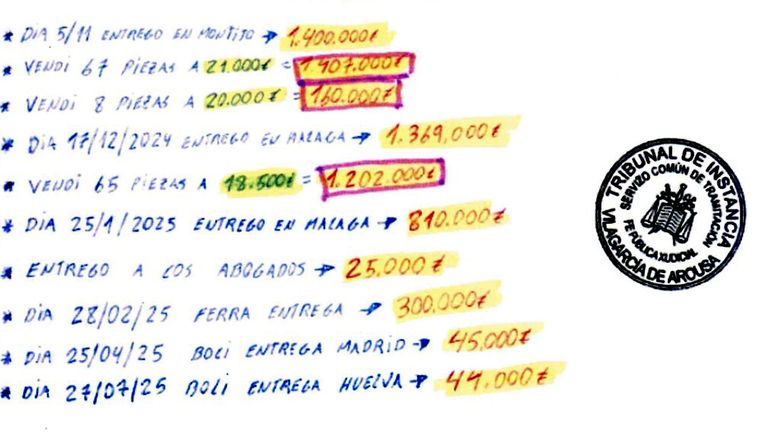 * DIA 5/11 ENTREGO EN MONTITO → 1.400.000€
* VENDI 67 PIEZAS A 21.000€ = 1.407.000€
* VENDI 8 PIEZAS A 20.000€ = 160.000€
* DIA 17/12/2024 ENTREGO EN MALAGA → 1.369,000€
* VENDI 65 PIEZAS A 18.500€ = 1.202.000€
* DIA 25/1/2025 ENTREGO EN MALAGA → 810.000€
* ENTREGO A LOS ABOGADOS → 25.000€
* DIA 28/02/25 FERRA ENTREGA → 300.000€
* DIA 25/04/25 BOLI ENTREGA MADRID → 45.000€
* DIA 27/07/25 BOLI ENTREGA HUELVA → 44.000€
TRIBUNAL DE INSTANCIA
SERVIZO COMÚN DE TRAMITACIÓN
FE PÚBLICA XUDICIAL
VILAGARCÍA DE AROUSA